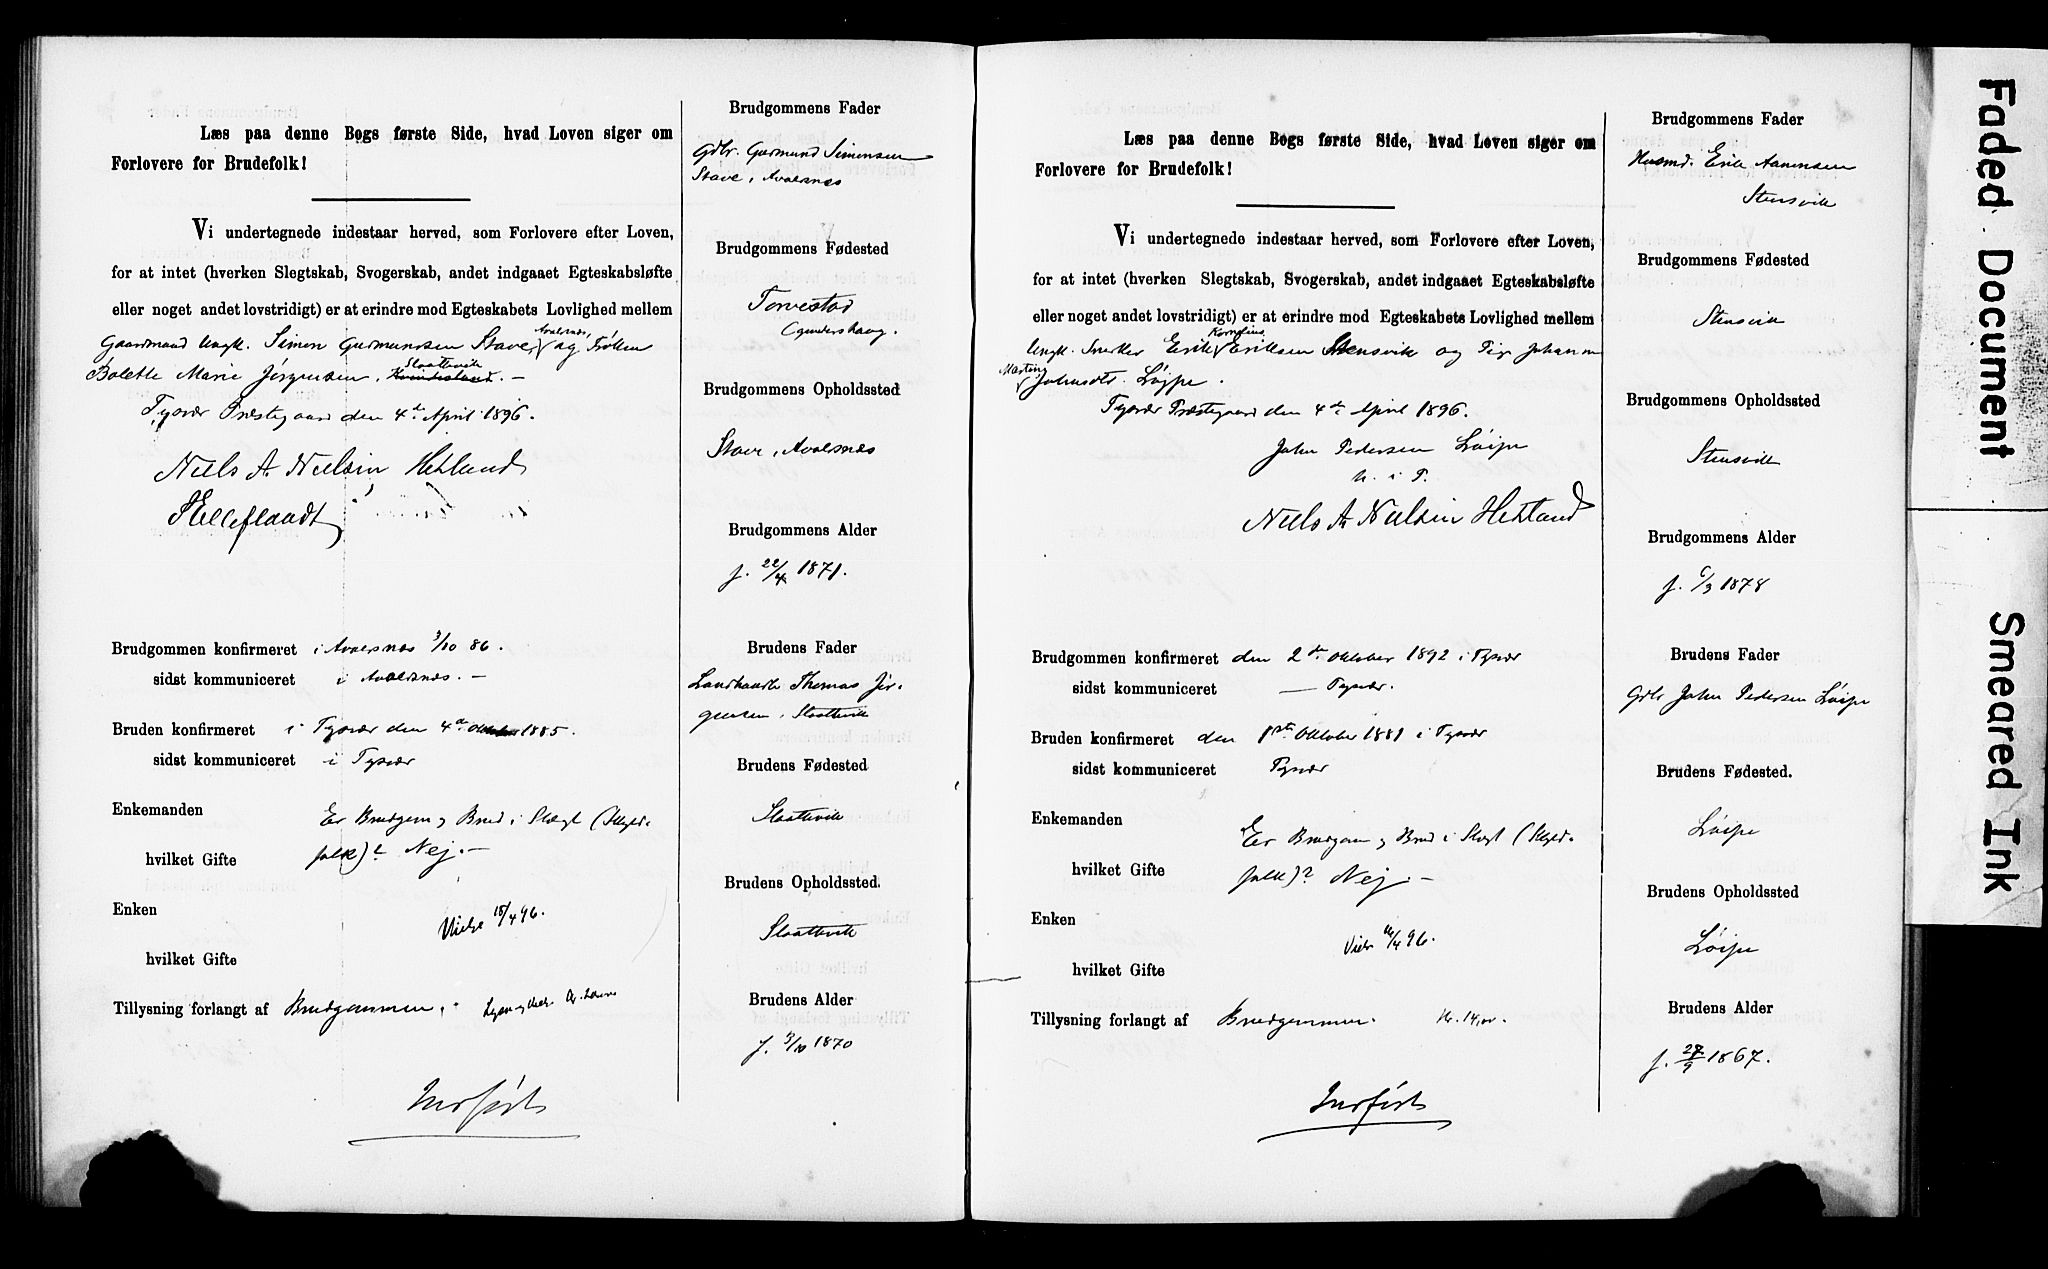 Læs paa denne Bogs første Side, hvad Loven siger om
Forlovere for Brudefolk!
Vi undertegnede indestaar herved, som Forlovere efter Loven,
for at intet (hverken Slegtskab, Svogerskab, andet indgaaet Egteskabsløfte
eller noget andet lovstridigt) er at erindre mod Egteskabets Lovlighed mellem
Avaldsnæs,
Gaardmand Ungk. Simon Gudmunsen Stave, og Frøken
Slaattevik
Bolette Marie Jørgensen, –
Tysvær Præstegaard den 4de April 1896.
Niels A Nielsen Hetland
Brudgommen konfirmeret i Avaldsnæs 3/10 86.
sidst kommuniceret i Avaldsnæs. –
Bruden konfirmeret i Tysvær den 4de Oktober 1885.
sidst kommuniceret i Tysvær
Enkemanden Er Brudgom og Brud i Slægt (Skyld-
folk)? Nej. –
hvilket Gifte
Enken
Viede 15/4 96.
hvilket Gifte
Tillysning forlangt af Brudgommen.
Indført
Brudgommens Fader
Gdbr. Gudmund Simonsen
Stave, Avaldsnæs
Brudgommens Fødested
Torvestad
Brudgommens Opholdssted
Stave, Avaldsnæs
Brudgommens Alder
f. 22/4 1871.
Brudens Fader
Landhandler Thomas Jør-
gensen, Slaattevik
Brudens Fødested
Slaattevik
Brudens Opholdssted.
Slaattevik
Brudens Alder
f. 5/10 1870
Læs paa denne Bogs første Side, hvad Loven siger om
Forlovere for Brudefolk!
Vi undertegnede indestaar herved, som Forlovere efter Loven,
for at intet (hverken Slegtskab, Svogerskab, andet indgaaet Egteskabsløfte
eller noget andet lovstridigt) er at erindre mod Egteskabets Lovlighed mellem
Kornelius
Ungk. Snedker Erik Eriksen Stensvik og Pige Johanne
Martine
Johnsdtr. Løipe.
Tysvær Præstegaard den 4de April 1896.
John Pedersen Løipe
m. i P.
Niels A Nielsen Hetland
Brudgommen konfirmeret den 2den Oktober 1892 i Tysvær
sidst kommuniceret — Tysvær.
Bruden konfirmeret den 1ste Oktober 1881 i Tysvær
sidst kommuniceret Tysvær
Enkemanden Er Brudgom og Brud i Slægt (Skyld-
folk)? Nej. –
hvilket Gifte
Enken
Viede 16/4 96.
hvilket Gifte
Tillysning forlangt af Brudgommen. Kr. 14,00.
Indført
Brudgommens Fader
Husmd. Erik Aanensen
Stensvik
Brudgommens Fødested
Stensvik
Brudgommens Opholdssted
Stensvik
Brudgommens Alder
f. 6/3 1878
Brudens Fader
Gdbr John Pedersen Løipe
Brudens Fødested.
Løipe
Brudens Opholdssted
Løipe
Brudens Alder
f. 27/9 1867.
Faded Document
Smeared Ink